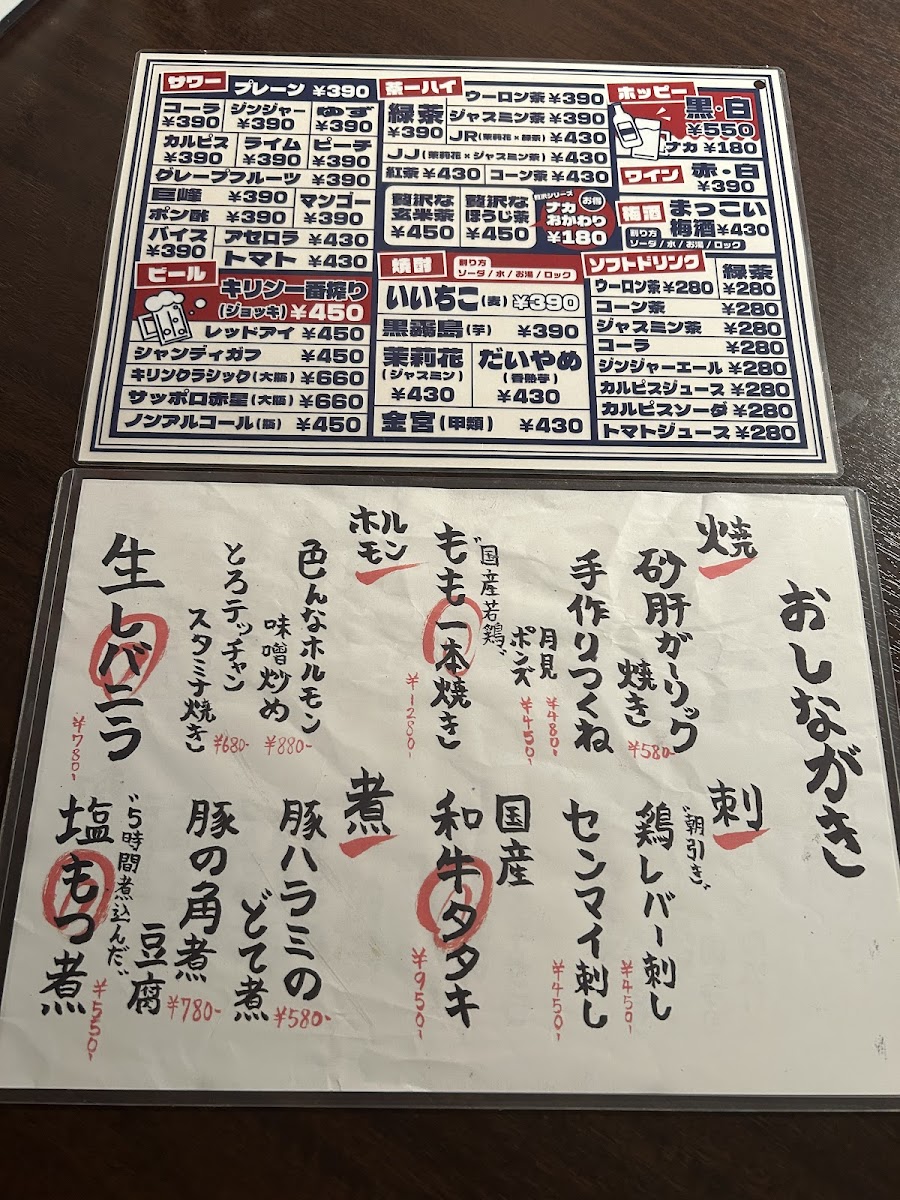 サワー プレーン ¥390
コーラ ¥390 ジンジャー ¥390 ゆず ¥390
カルピス ¥390 ライム ¥390 ピーチ ¥390
グレープフルーツ ¥390
巨峰 ¥390 マンゴー ¥390
ポン酢 ¥390
バイス ¥390 アセロラ ¥430
トマト ¥430
ビール
キリン一番搾り
(ジョッキ) ¥450
レッドアイ ¥450
シャンディガフ ¥450
キリンクラシック(大瓶) ¥660
サッポロ赤星(大瓶) ¥660
ノンアルコール(瓶) ¥450
茶ーハイ
ウーロン茶 ¥390
緑茶 ¥390
ジャスミン茶 ¥390
JR(茉莉花×緑茶) ¥430
JJ(茉莉花×ジャスミン茶) ¥430
紅茶 ¥430 コーン茶 ¥430
贅沢な玄米茶 ¥450
贅沢なほうじ茶 ¥450
贅沢シリーズ お得
ナカおかわり ¥180
焼酎
割り方
ソーダ/水/お湯/ロック
いいちこ(麦) ¥390
黒霧島(芋) ¥390
茉莉花(ジャスミン) ¥430
だいやめ(香熟芋) ¥430
金宮(甲類) ¥430
ホッピー
黒・白
¥550
ナカ ¥180
ワイン 赤・白
¥390
梅酒 まっこい梅酒 ¥430
割り方
ソーダ/水/お湯/ロック
ソフトドリンク
緑茶 ¥280
ウーロン茶 ¥280
コーン茶 ¥280
ジャスミン茶 ¥280
コーラ ¥280
ジンジャーエール ¥280
カルピスジュース ¥280
カルピスソーダ ¥280
トマトジュース ¥280
おしながき
焼
砂肝ガーリック
焼き ¥580-
手作りつくね
月見 ¥480-
ポンズ ¥450-
"国産若鶏"
もも一本焼き
¥1280-
ホルモン
色んなホルモン
味噌炒め ¥880-
とろテッチャン
スタミナ焼き ¥680-
生しバニラ
¥780-
刺
"朝引き"
鶏レバー刺し
¥450-
センマイ刺し
¥450-
国産
和牛タタキ
¥950-
煮
豚ハラミの
どて煮 ¥580-
豚の角煮
¥780-
豆腐
"5時間煮込んだ"
塩もつ煮
¥550-